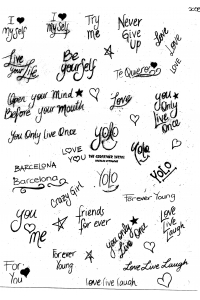 2008
I ♥
Myself
I ♥
Myself
Try
me
Never
Give
up
Love
Love
Love
Live
your Life
Be
yourself
Te Quiero
Open your Mind
Before your Mouth
Love
you
Only
live
once
You Only Live Once
Yolo
LOVE
YOU
Yolo
BARCELONA
Barcelona
Yolo
YOLO
Crazy Girl
Forever Young
you
♥ me
friends
for ever
you only
Live One
Love
Live
Laugh
For
You
Forever
Young
Love Live Laugh
love live laugh